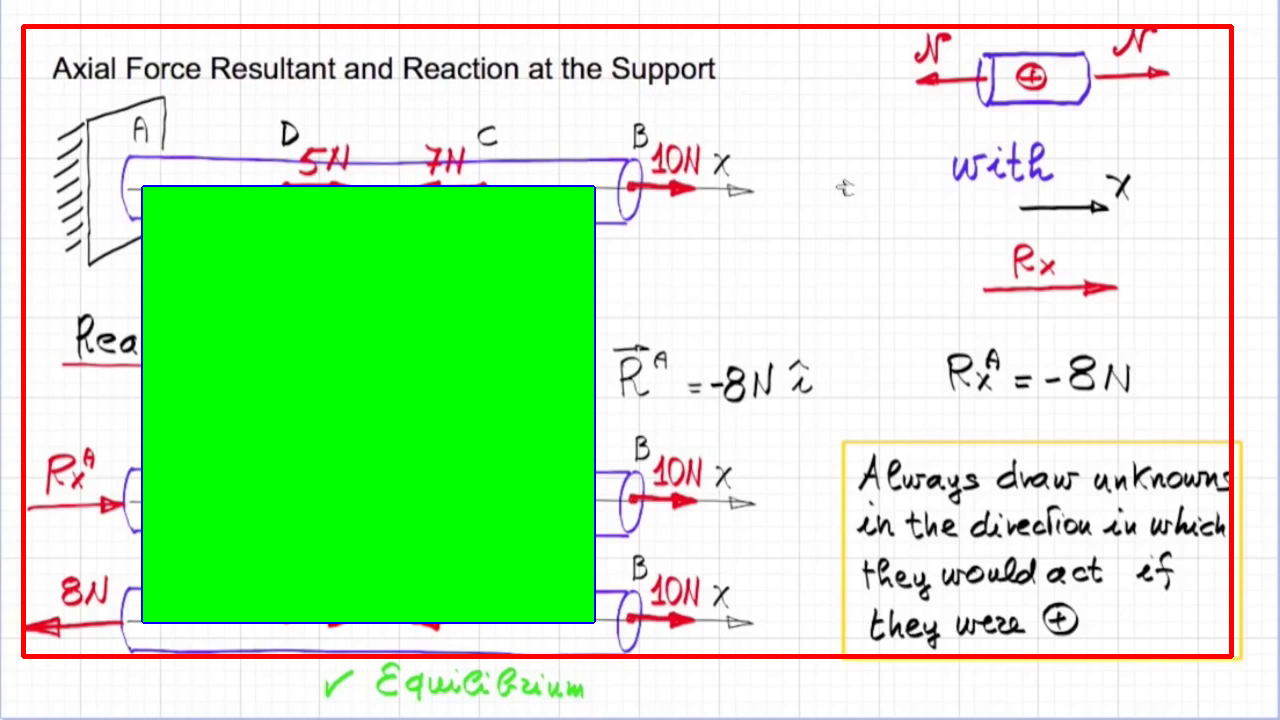 Axial Force Resultant and Reaction at the Support
N ⊕ N
A D 5N 7N C B 10N x
with x
Rx
R⃗ᴬ = -8N î
Rxᴬ = -8N
Rxᴬ B 10N x
8N B 10N x
Always draw unknowns
in the direction in which
they would act if
they were ⊕
✓ Equilibrium